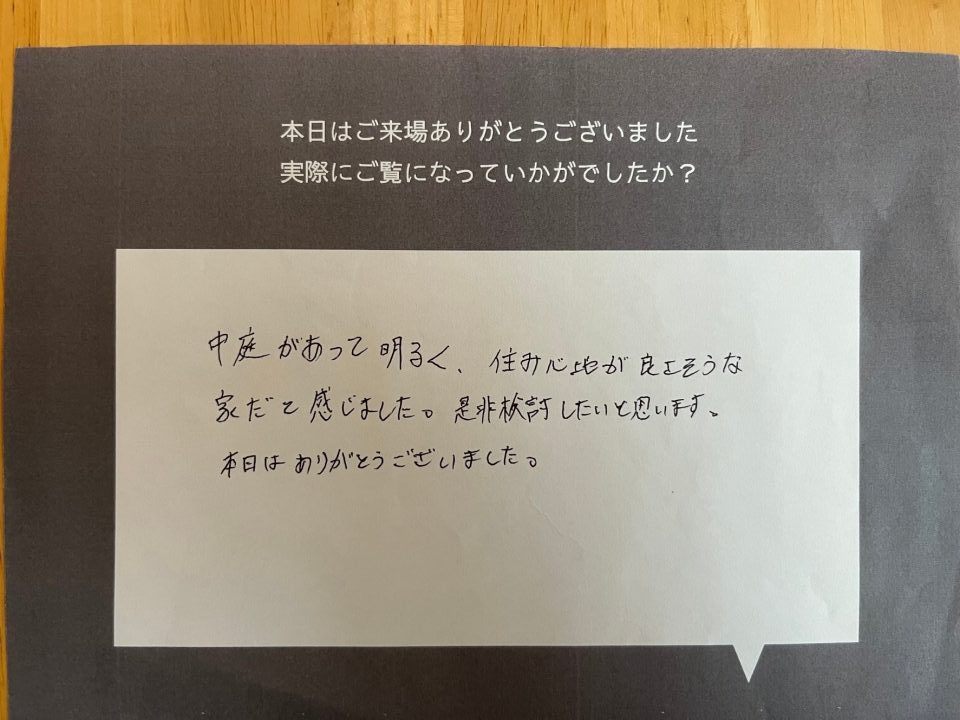 本日はご来場ありがとうございました
実際にご覧になっていかがでしたか？
中庭があって明るく、住み心地が良さそうな
家だと感じました。是非検討したいと思います。
本日はありがとうございました。